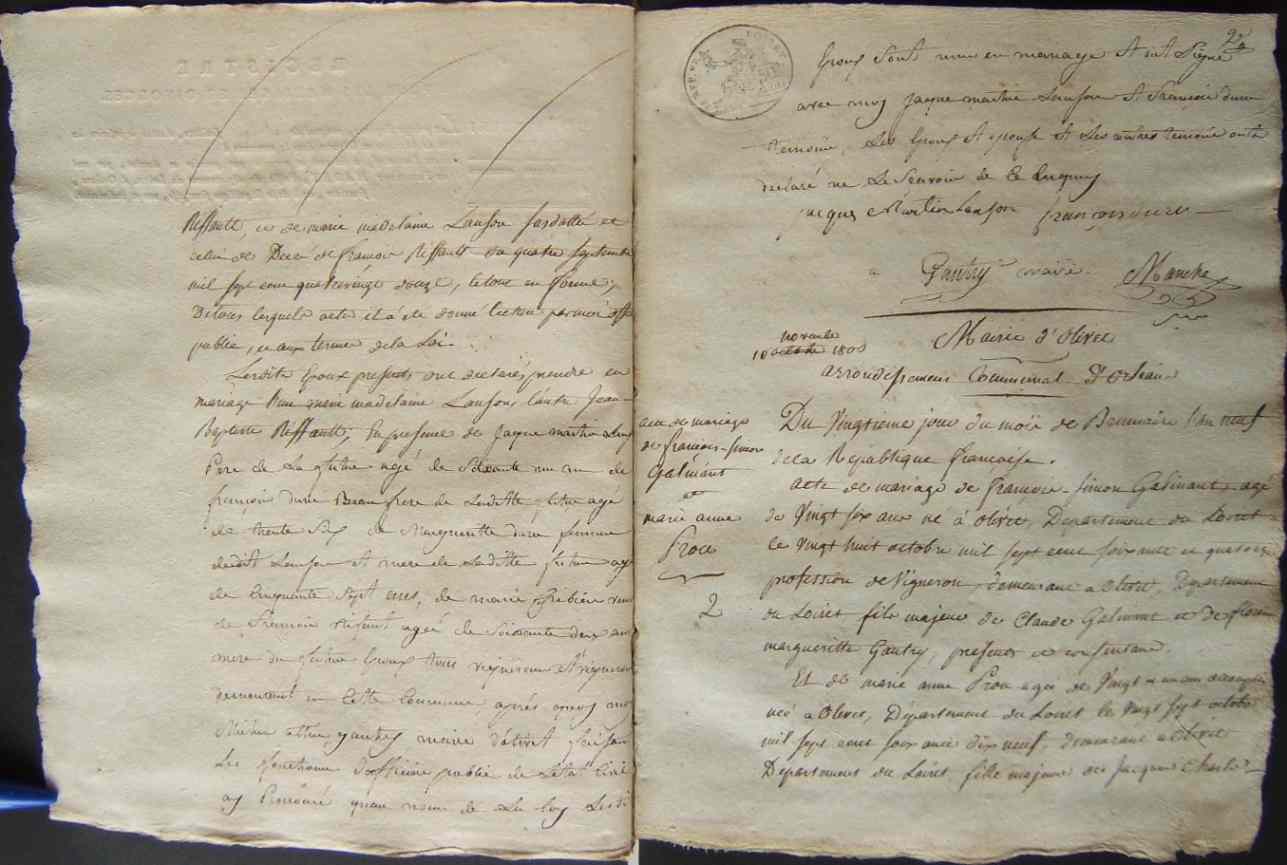 Riffault, et de marie madelaine Lanson
celui de Décé de françois Riffault du quatre septembre
mil sept cent quatrevingt douze, le tout en forme,
De tous lesquels acte il a été donné lecture par moi off
public, et aux termes de la Loi.
Lesdits Epoux presents ont déclarés prendre en
mariage l'une marie madelaine Lanson, l'autre Jean-
Baptiste Riffault, En presence de Jacque martin
Pere de La future agé de Soixante un an de
françois dure Beau frere de Laditte future agé
de trente Six de Margueritte dure femme
dudit Lanson et mere de Laditte future agé
de Cinquante Sept anes, de marie
de francois agée de Soixante deux ans
mere du futur Epoux tous vigneron et vigneron
demeurant en Cette Commune après quoy moy
gautry, maire d'olivet faisan
Les fonctions D'officier public de L'etat Civil
ay prononcé qu'au nom de La loy Lesdi
2e
Epoux sont unis en mariage et ont Signé
avec moy Jacque martin Lanson et francois dure
temoins, Les Epoux et epouse et Les autres temoins ont
declaré ne Le Scavoir de Ce Enquis
jacques Martin Lanson françois dure
Gautry maire Manche
novembre
10 octobre 1800
Mairie d'Olivet
arrondissement Communal d'Orleans
acte de mariage
de francois-simon
Galinant
et
marie anne
Prou
2
Du Vingtieme jour du mois de Brumaire l'an neuf
de la République française.
acte de mariage de francois-simon Galinant, agé
de Vingt six ans né à Olivet, Département du Loiret
le Vingt huit octobre mil sept cent soixante et quatorze
profession de Vigneron, demeurant a Olivet, Departement
du Loiret fils majeur de Claude Galinant et de
margueritte Gautry, presents et consentans.
Et de marie anne Prou agée de Vingt et un ans accomplis
née a Olivet, Département du Loiret le vingt sept octobre
mil sept cent soixante dix neuf, demeurant a Olivet
Departement du Loiret, fille majeure de Jacques Charle